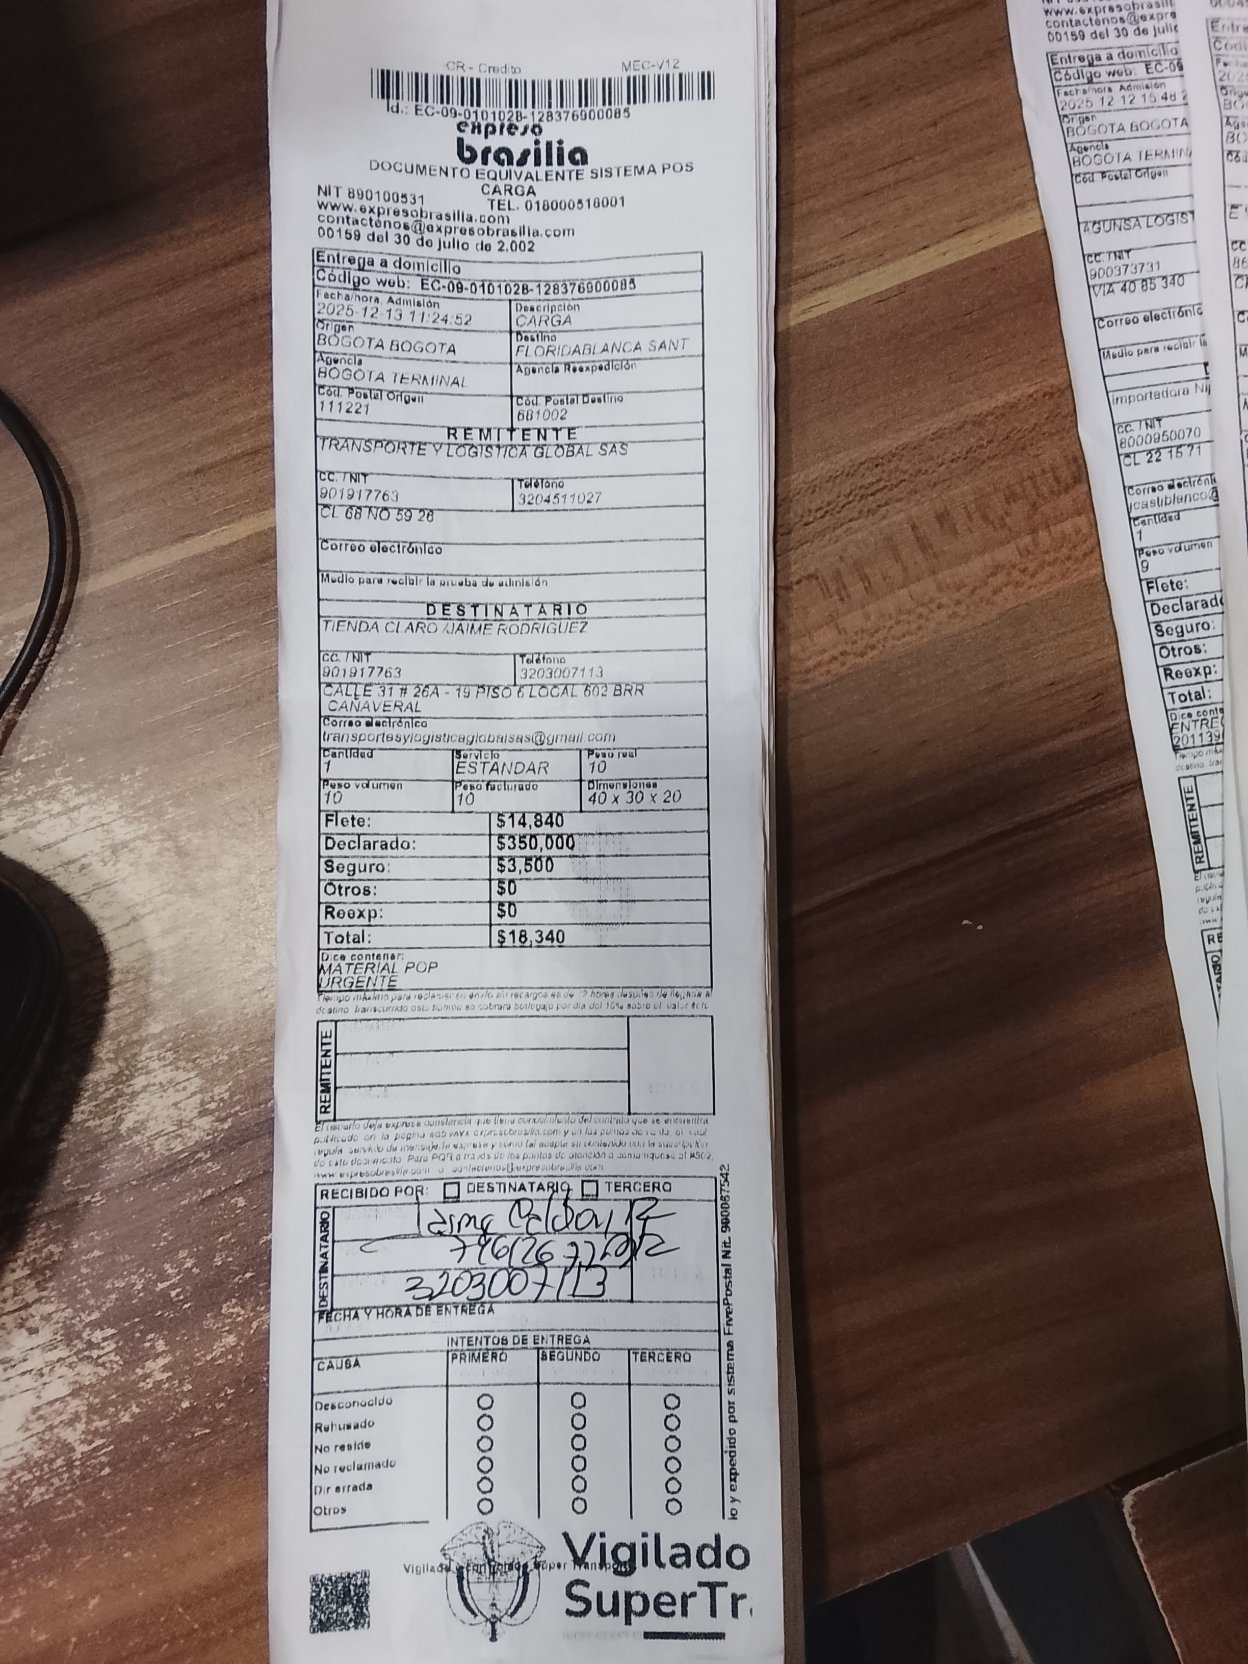 CR - Credito MEC-V12
Id.: EC-09-0101028-128376900085
expreso
brasilia
DOCUMENTO EQUIVALENTE SISTEMA POS
CARGA
NIT 890100531
TEL. 018000518001
www.expresobrasilia.com
contactenos@expresobrasilia.com
00159 del 30 de julio de 2.002
Entrega a domicilio
Código web: EC-09-0101028-128376900085
Fecha/hora, Admisión Descripción
2025-12-13 11:24:52 CARGA
Origen Destino
BOGOTA BOGOTA FLORIDABLANCA SANT
Agencia Agencia Reexpedición
BOGOTA TERMINAL
Cód. Postal Origen Cód. Postal Destino
111221 681002
REMITENTE
TRANSPORTE Y LOGISTICA GLOBAL SAS
CC. / NIT Teléfono
901917763 3204511027
CL 68 NO 59 26
Correo electrónico
Medio para recibir la prueba de admisión
DESTINATARIO
TIENDA CLARO /JAIME RODRIGUEZ
CC. / NIT Teléfono
901917763 3203007113
CALLE 31 # 26A - 19 PISO 6 LOCAL 602 BRR
CAÑAVERAL
Correo electrónico
transportesylogisticaglobalsas@gmail.com
Cantidad Servicio Peso real
1 ESTANDAR 10
Peso volumen Peso facturado Dimensiones
10 10 40 x 30 x 20
Flete: $14,840
Declarado: $350,000
Seguro: $3,500
Otros: $0
Reexp: $0
Total: $18,340
Dice contener:
MATERIAL POP
URGENTE
Tiempo máximo para reclamar su envío sin recargos es de 72 horas después de llegada a
destino. Transcurrido este tiempo se cobrara bodegaje por día del 10% sobre el valor flete
REMITENTE
El usuario deja expresa constancia que tiene conocimiento del contrato que se encuentra
publicado en la pagina web www.expresobrasilia.com y en los puntos de venta, el cual
regula servicio de mensajería expresa y como tal acepta su contenido con la suscripción
de este documento. Para PQR a través de los puntos de atención o comuníquese al #502,
www.expresobrasilia.com o contactenos@expresobrasilia.com
RECIBIDO POR: DESTINATARIO TERCERO
DESTINATARIO
3203007113
FECHA Y HORA DE ENTREGA
INTENTOS DE ENTREGA
CAUSA PRIMERO SEGUNDO TERCERO
Desconocido
Rehusado
No reside
No reclamado
Dir errada
Otros
lo y expedido por sistema FivePostal Nit. 900087542
Vigilado
SuperTr
www.expresobrasili
contactenos@expre
00159 del 30 de julio
Entrega a domicilio
Código web: EC-09
Fecha/hora Admisión
2025 12 12 15:48 2
Origen
BOGOTA BOGOTA
Agencia
BOGOTA TERMIN
Cód. Postal Origen
AGUNSA LOGIST
CC. / NIT
900373731
VIA 40 85 340
Correo electrónic
Medio para recibir la
Importadora Nip
CC. / NIT
8000950070
CL 22 15 71
Correo electróni
jcastiblanco@
Cantidad
1
Peso volumen
9
Flete:
Declarado
Seguro:
Otros:
Reexp:
Total:
Dice conte
ENTRE
REMITENTE